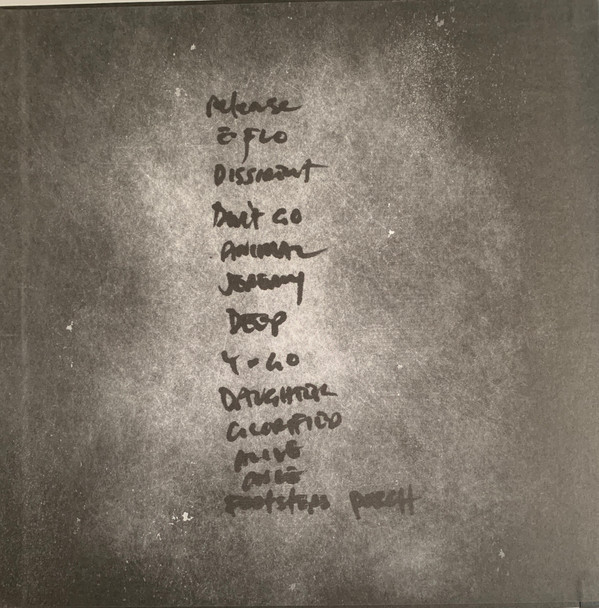 Release
E-FLO
DISSIDENT
Don't GO
ANIMAL
JEREMY
DEEP
Y-GO
DAUGHTER
GLORIFIED
ALIVE
FOOTSTEPS PORCH